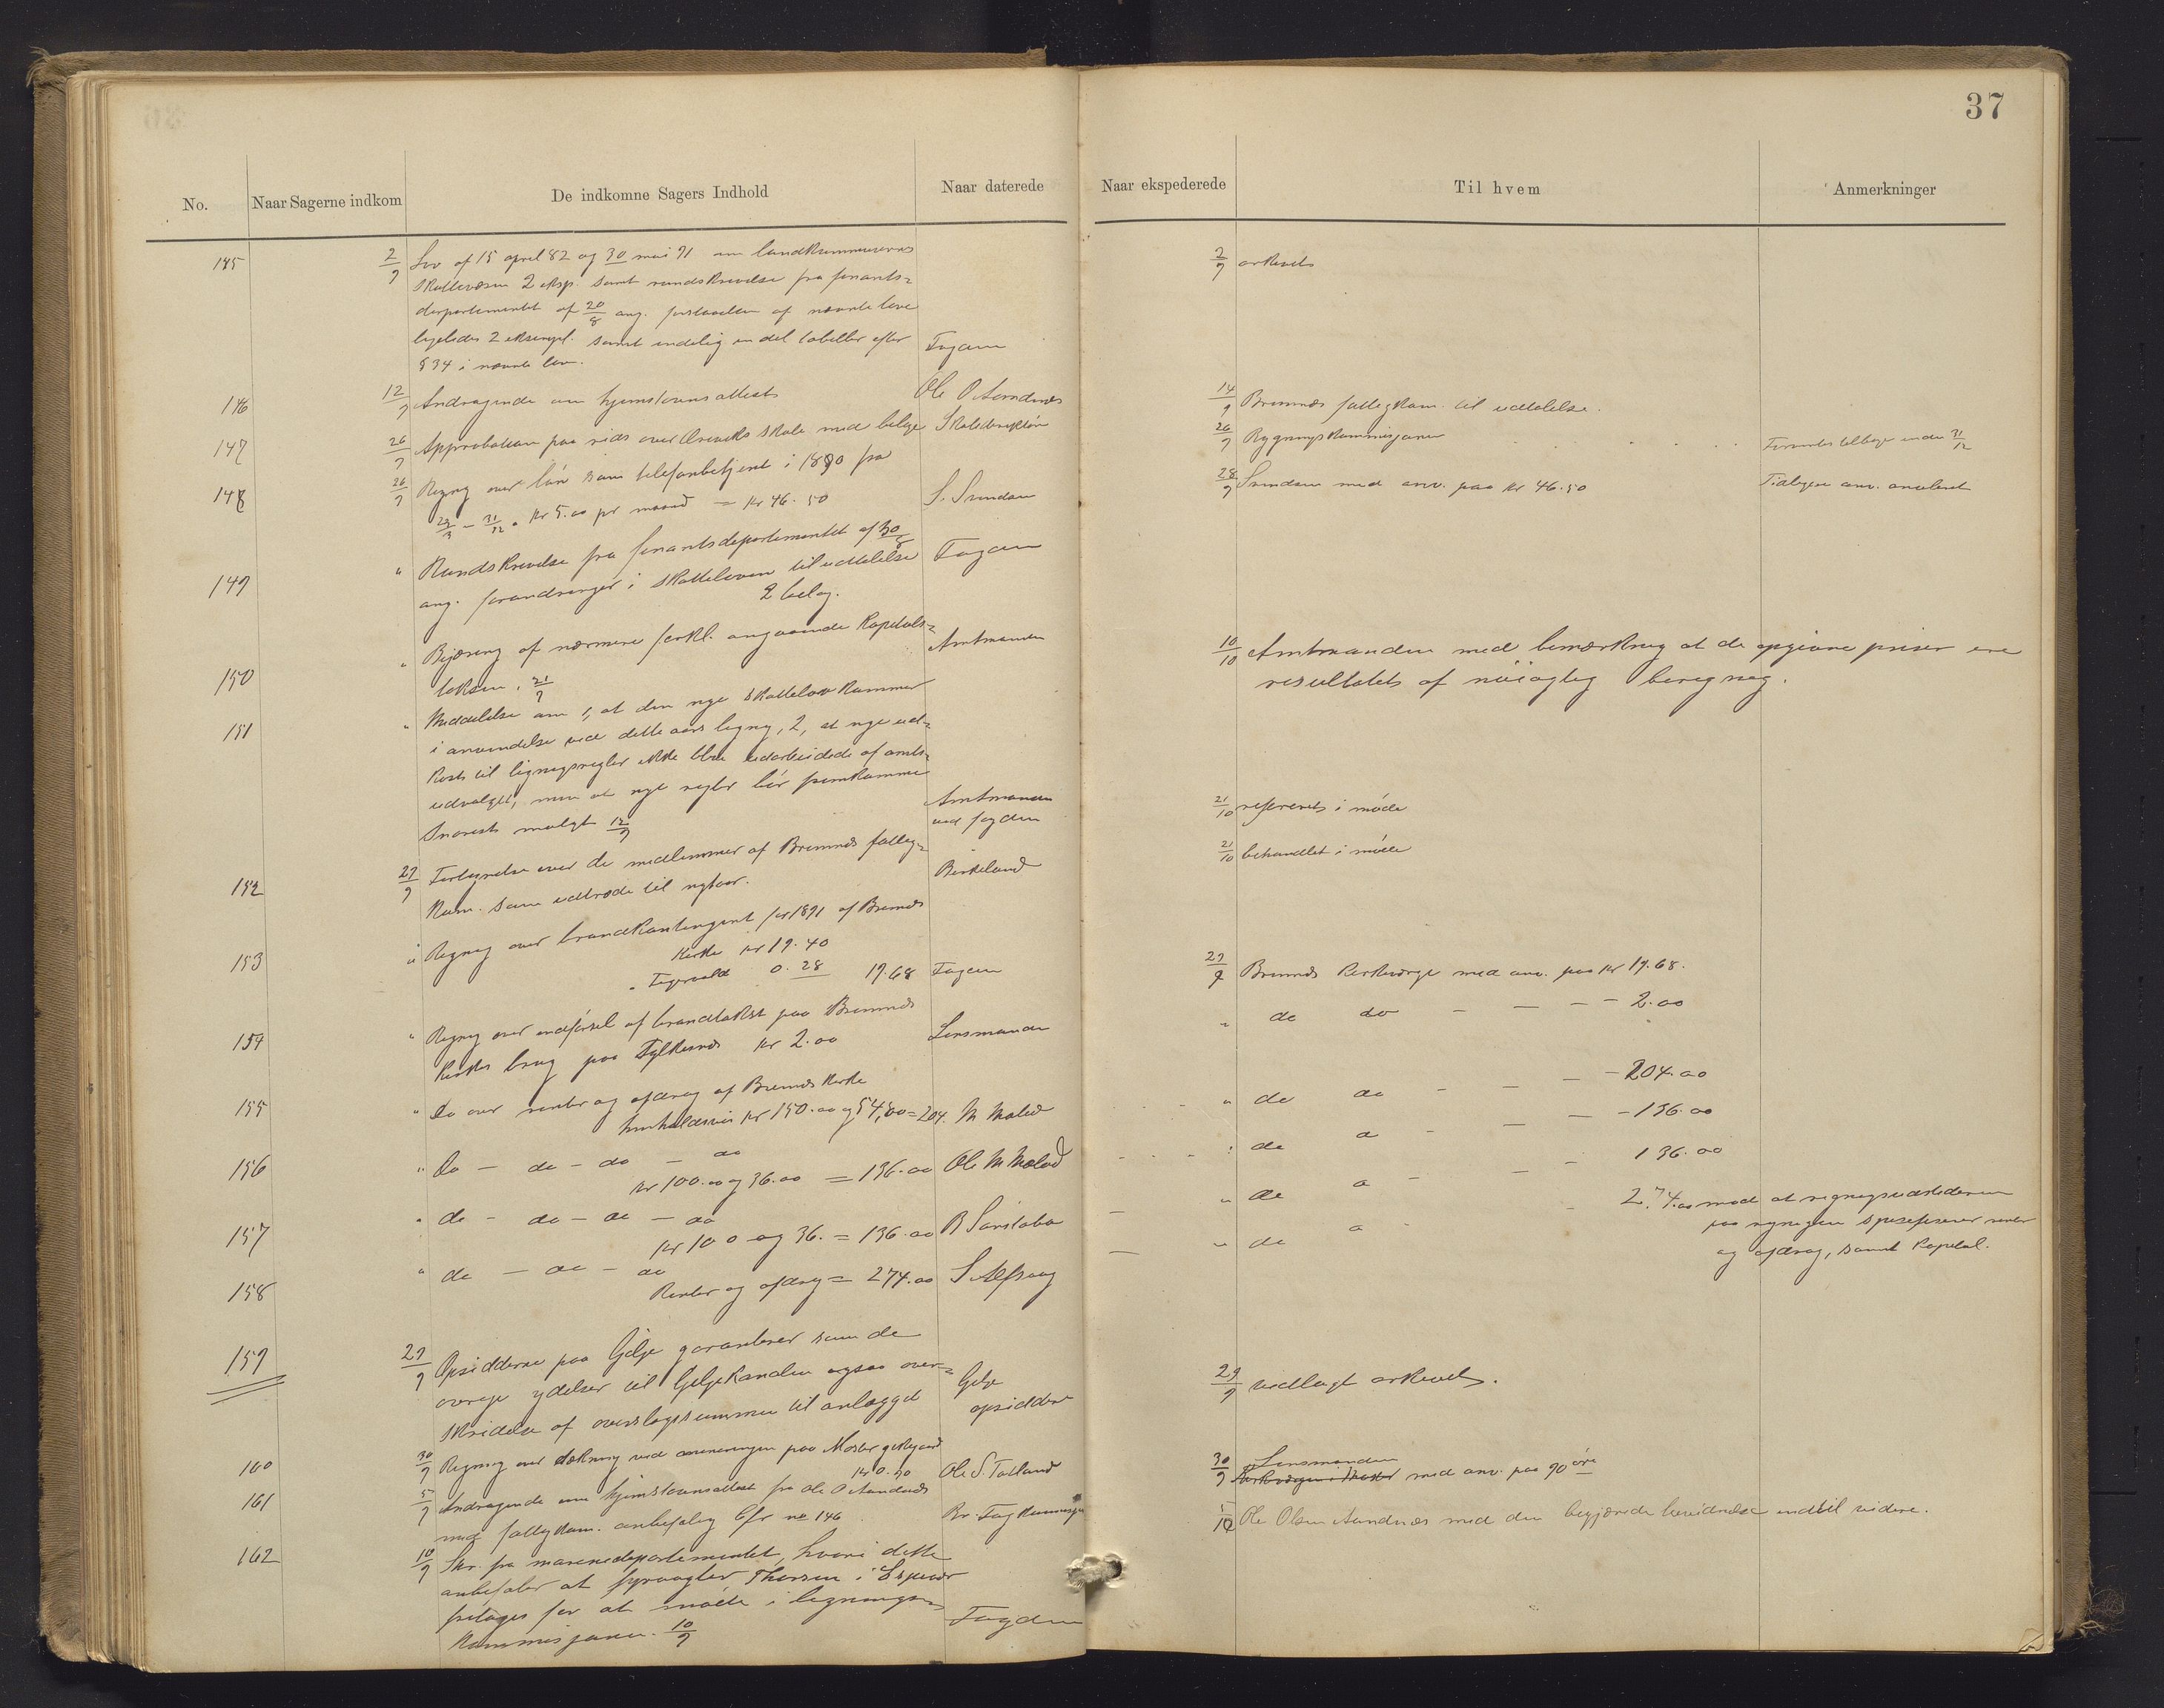 37
No.
Naar Sagerne indkom
De indkomne Sagers Indhold
Naar daterede
Naar ekspederede
Til hvem
Anmerkninger
145
2/9 Lov af 15 april 82 og 30 mai 91 om landkommunernes
skattevæsen 2 eksp. samt rundskrivelse fra finants-
departementet af 20/8 ang. forstaaelsen af nævnte love
ligeledes 2 eksempl. samt endelig en del tabeller efter
§ 34 i nævnte lov. Fogden
2/9 arkivets
146
12/9 Andragende om hjemslovns attest Ole O Aandnes
14/9 Bremnæs fattigkom. til udtalelse.
147
26/9 Approbation paa rids over skole med bilage Skoledirektøren
26/9 Bygningskommisjonen
tilbage inden 31/12
148
26/9 Regng over løn som telefonbetjent i 1890 fra
29/3 - 31/12 a kr 5.00 pr maaned = kr 46.50 S. Svendsen
28/9 Svendsen med anv. paa kr 46.50
Tidligere anv. anuleret
149
" Rundskrivelse fra finantsdepartementet af 30/8
ang. forandringer i skatteloven til udtalelse Fogden
2 bilag.
150
" Begjæring af nærmere forkl. angaaende kapitels-
taksten. 21/9 Amtmanden
10/10 Amtmanden med bemærkning at de opgivne priser ere
resultatet af nøiagtig beregning.
151
" Meddelelse om 1, at den nye skattelov kommer
i anvendelse ved dette aars ligng, 2, at nye ud-
kast til ligningsregler ikke blir udarbeidede af amts-
udvalget, men at nye regler bør fremkomme
snarest muligt 12/9
Amtmanden
ved fogden
21/10 refereret i møde
152
27/9 Fortegnelse over de medlemmer af Bremnes fattig-
kom. som udtræde til nytaar. Birkeland
21/10 behandlet i møde
153
" Regng over brandkontingent for 1891 af Bremnes
Kirke kr 19.40
0.28 19.68 Fogden
29/9 Bremnes kirkeverge med anv. paa kr 19.68.
154
" Regng over indførsel af brandtakst paa Bremnes
kirkes brug paa Fylkesnes kr 2.00 Lensmanden
" do do - - - 2.00
155
" Do over renter og afdrag af Bremnes kirke
henholdsvis kr 150.00 og 54,00 = 204. M Meland
" do do - - - 204.00
156
" Do - do - do - do
kr 100.00 og 36.00 = 136.00 Ole M Meland
" do - - - 136.00
157
" do - do - do - do
kr 100 og 36. = 136.00 B
" do - - - 136.00
158
" do - do - do
Renter og afdrag = 274.00 S Alfsvaag
" do 274.00 mod at regningsudstederen
paa regningen spesifiserer renter
og afdrag, samt kapital.
159
29/9 Opsidderne paa Gilje garanterer som de
øvrige ydelser til Giljekanalen ogsaa over-
skridelse af overslagssummen til anlægget
Gilje
opsiddere
29/9 vedlagt arkivet.
160
30/9 Regning over dækning ved paa Moster
kr 0.90 Ole S. Totland
30/9 Lensmanden med anv. paa 90 øre
161
5/9 Andragende om hjemslovnsattest fra Ole O Aandnes
med fattigkom. anbefaling Cfr no 146 Br. Fatgkommisjon
5/10 Ole Olsen Aandnes med den begjærede bevidnelse indtil videre.
162
10/9 Skr. fra marinedepartementet, hvori dette
anbefaler at fyrvogter Thorsen i Espevær
fritages for at møde i lignings-
kommisjonen. 10/9 Fogden